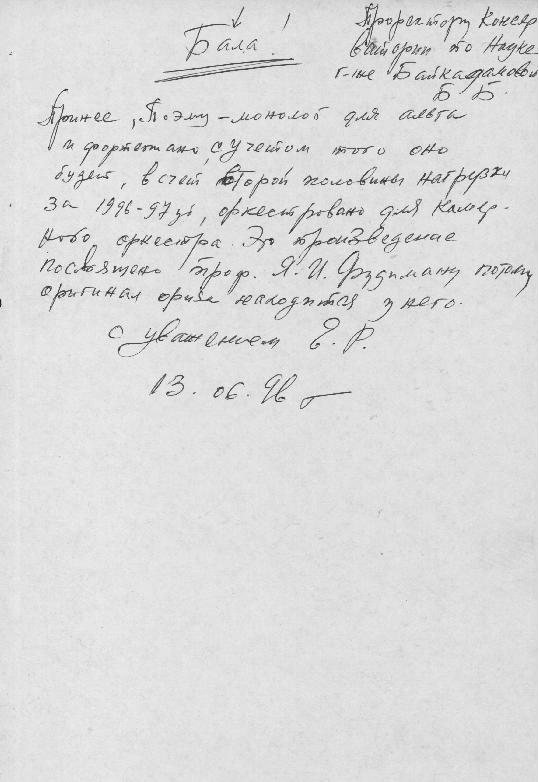 Проректору Консер-
ватории по Науке
г-же Байкадамовой
Б. Б.
Бала!
Принес „Поэму-монолог для альта
и фортепиано, с учетом того оно
будет, в счет второй половины нагрузки
за 1996-97 уг, оркестровано для камер-
ного оркестра. Это произведение
посвящено проф. Я. И. Фудиману потому
оригинал находится у него.
С уважением Е. Р.
13. 06. 96